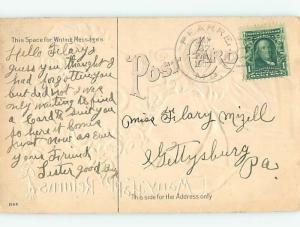 This Space for Writing Messages
Hello Filary I
guess you thought I
had forgotten you
but did not I was
only waiting to find
a Card to Send you
so here it Comes
just now as ever
your Friend
Sister good by
POST CARD
Miss Filary Mizell
Gettysburg
Pa.
This side for the Address only